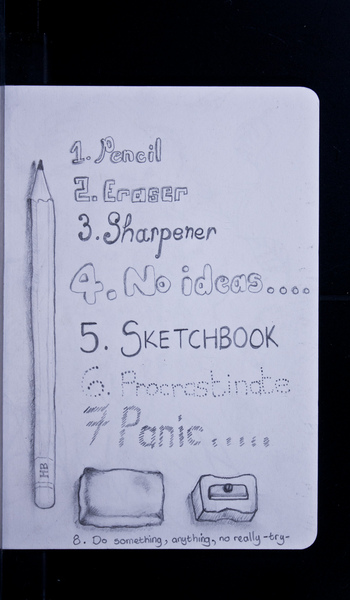 1. Pencil
2. Eraser
3. Sharpener
4. No ideas....
5. SKETCHBOOK
6. Procrastinate
7 Panic.....
HB
8. Do something, anything, no really -try-